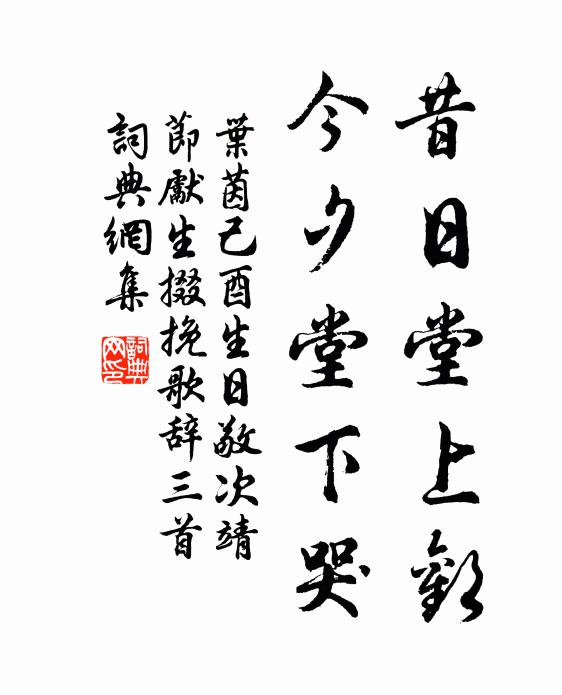 昔日堂上歡
今夕堂下哭
葉茵己酉生日敬次靖
節獻生掇挽歌辞三首
詞典網集
詞典网印